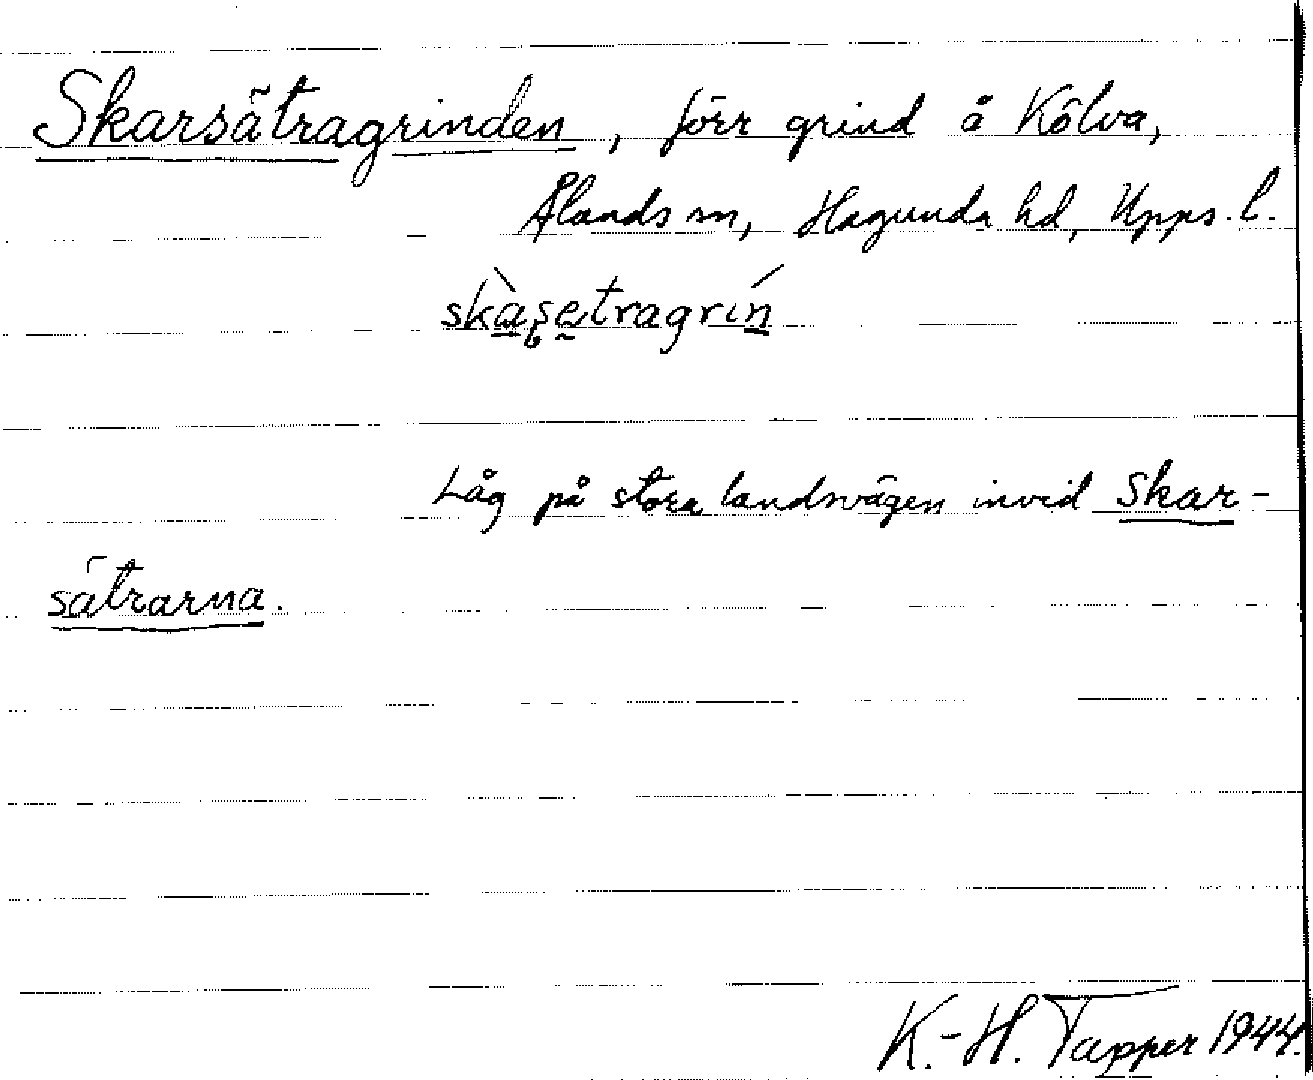 Skarsätragrinden, förr grind å Kölva,
Ålands sn, Hagunda hd, Upps. l.
skàsetragrín
Låg på stora landsvägen invid Skar-
sätrarna.
K.-H. Tapper 1944.